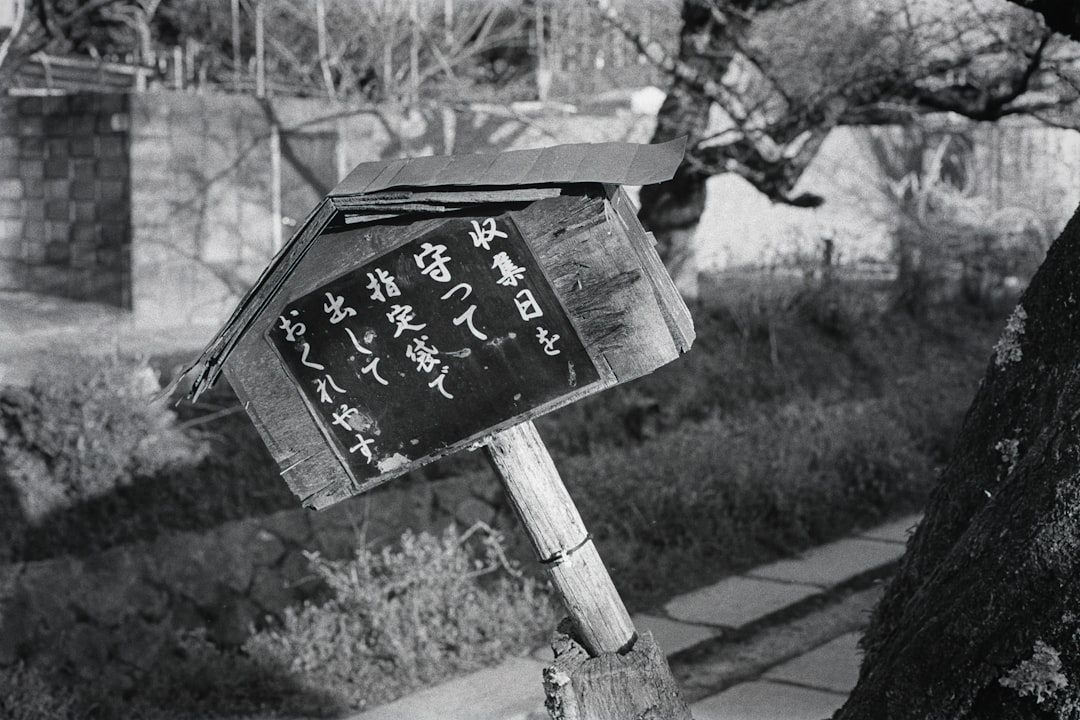 収集日を
守って
指定袋で
出して
おくれやす